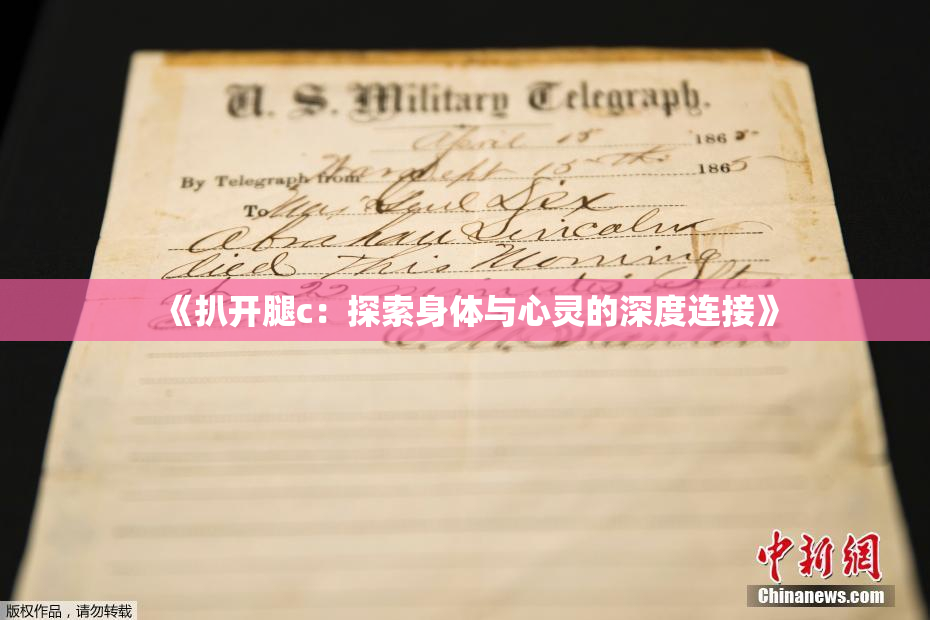 U. S. Military Telegraph.
April 15 1865
By Telegraph from War Dept 15th 1865
To Maj Genl Dix
Abraham Lincoln
died This Morning
at 22 minutes after
《扒开腿c：探索身体与心灵的深度连接》
中新网
Chinanews.com
版权作品，请勿转载